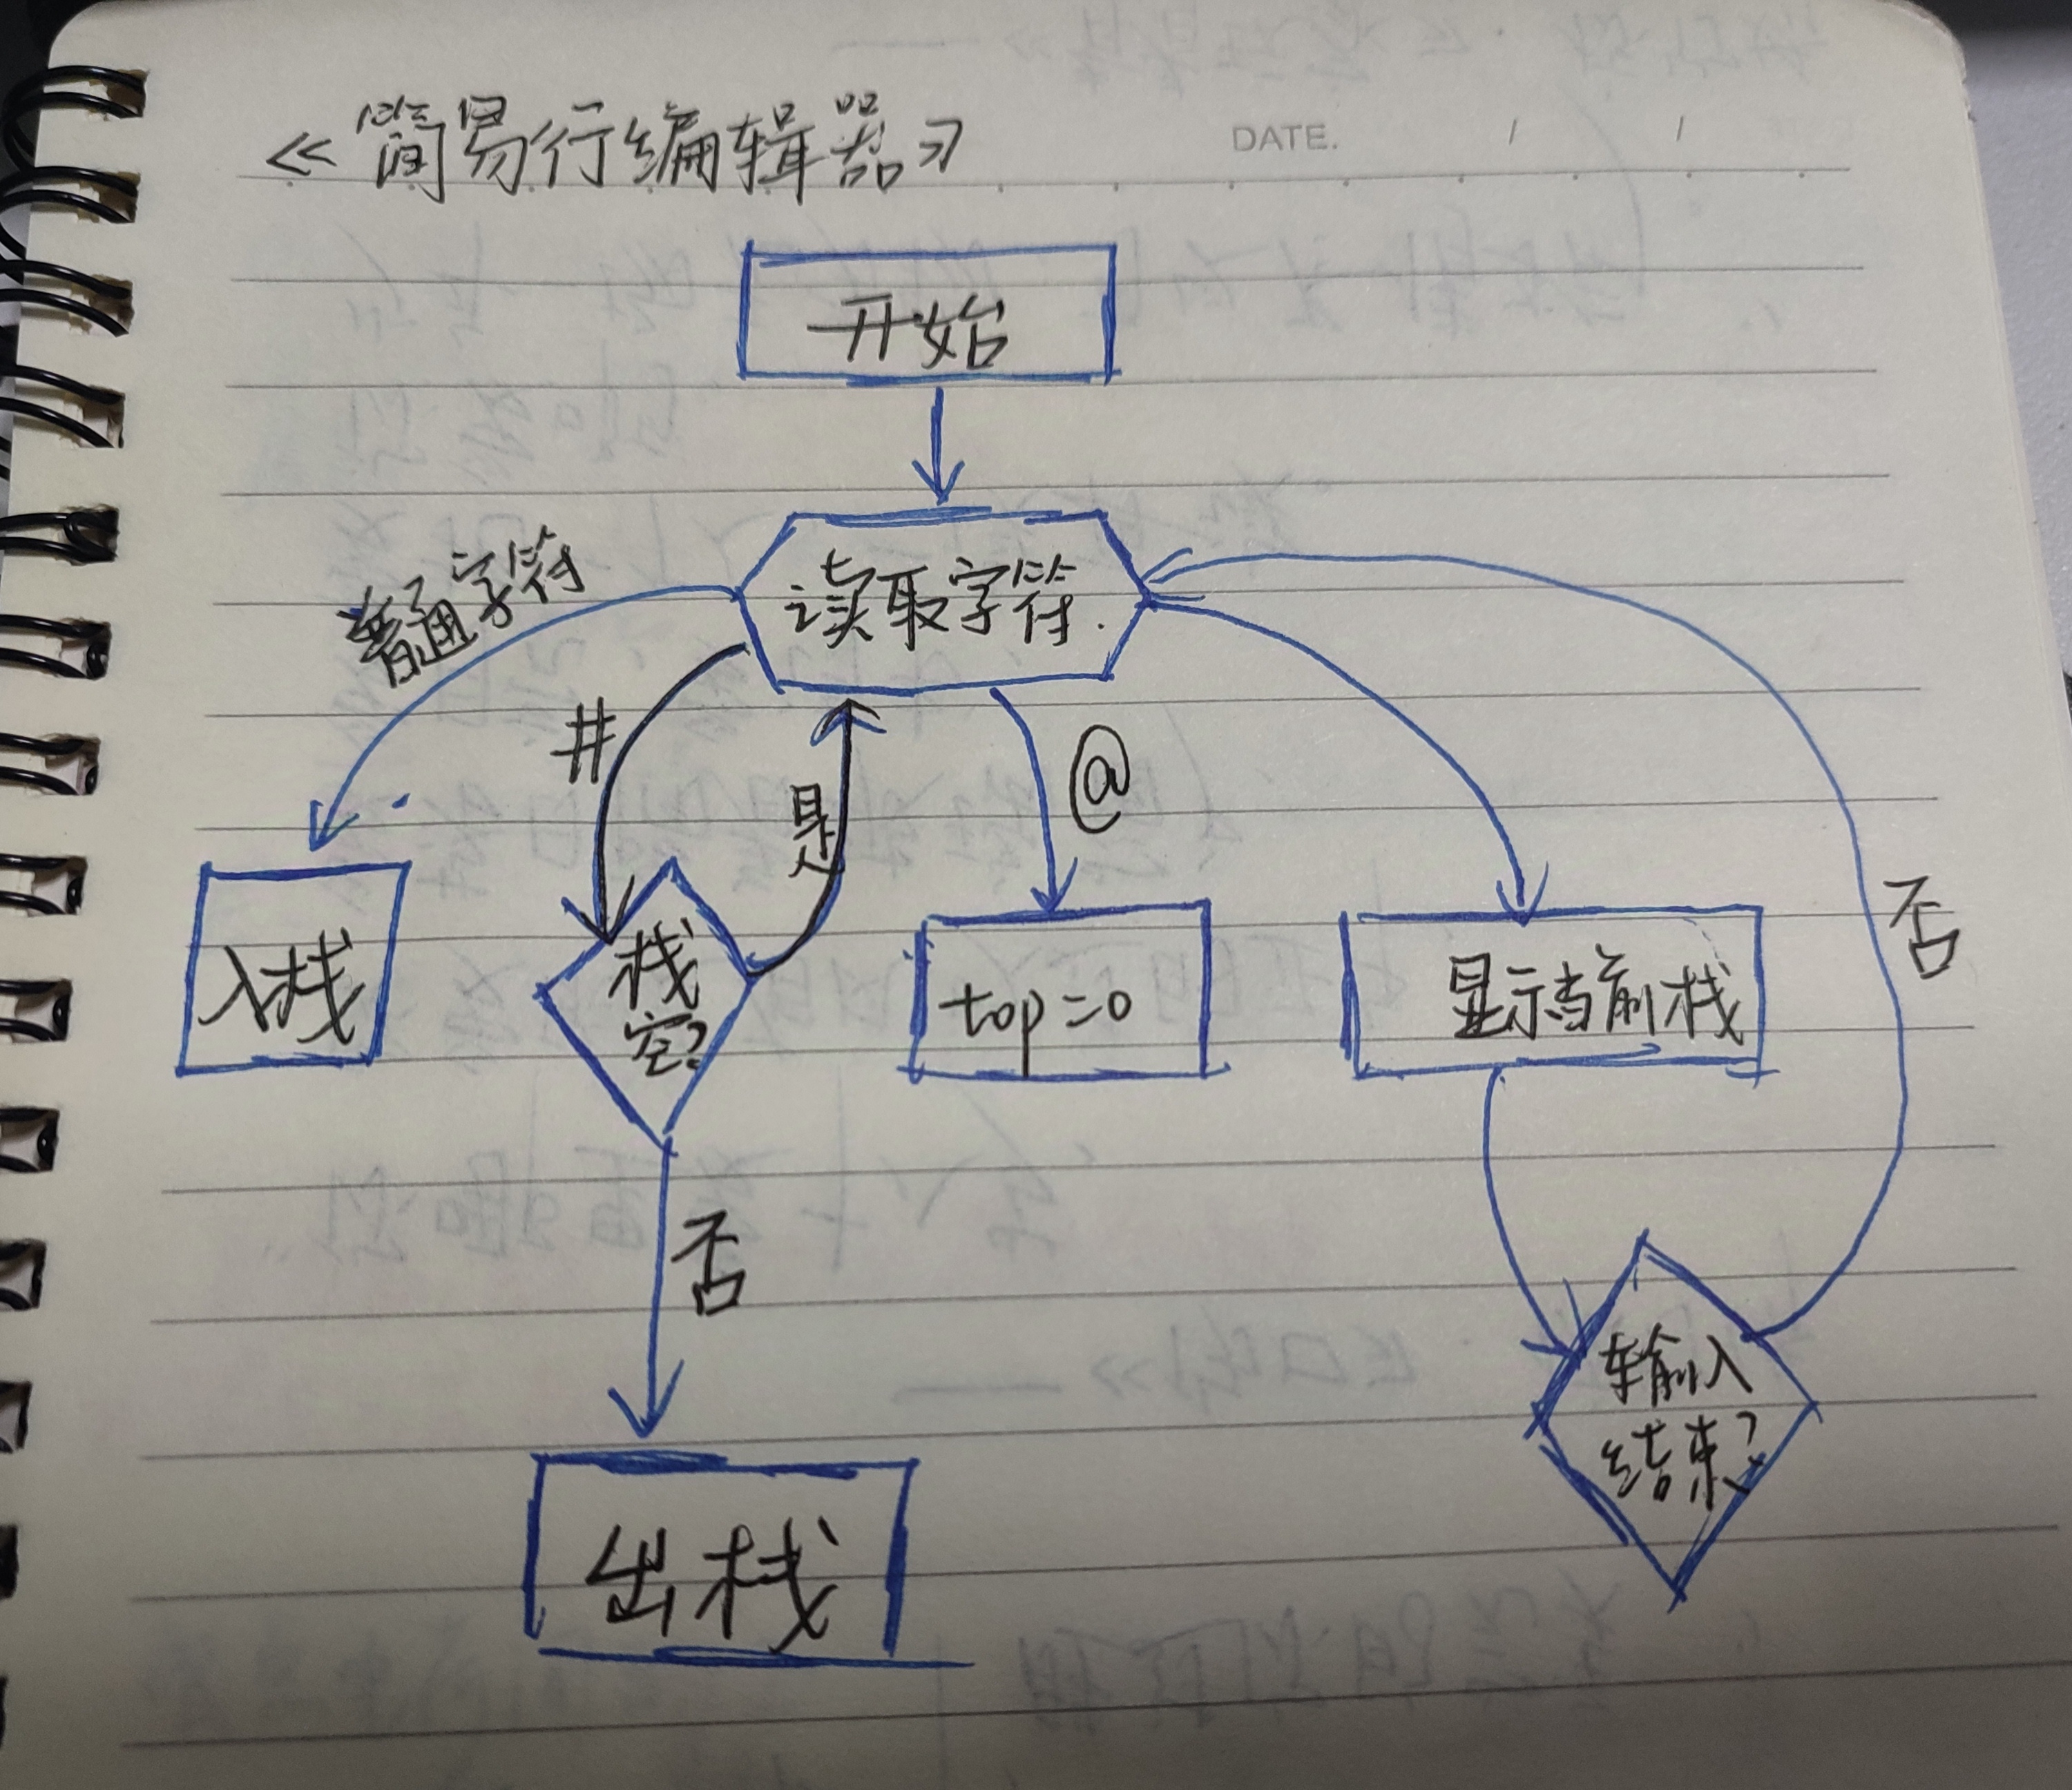 《简易行编辑器》
DATE. / /
开始
读取字符.
普通字符
#
是
@
否
入栈
栈
空?
top=0
显示当前栈
否
输入
结束?
出栈